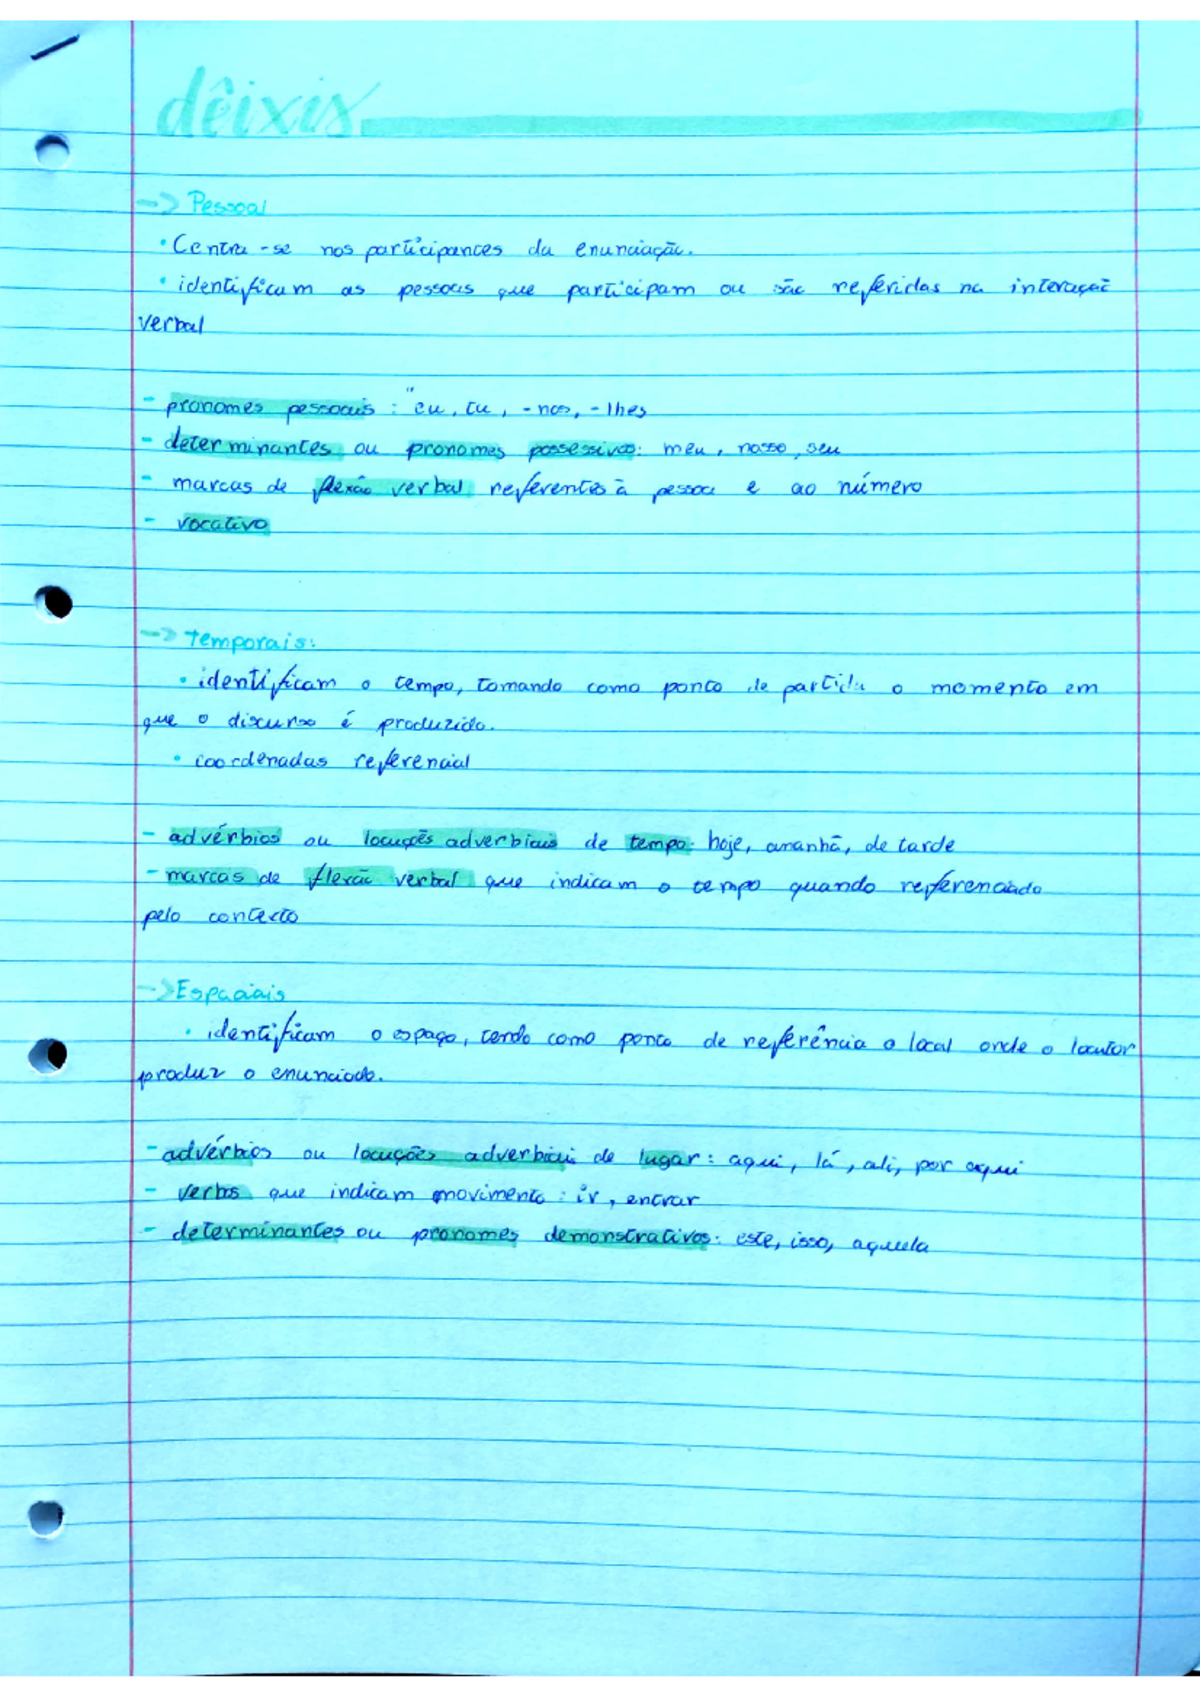 dêixis
-> Pessoal
• Centra-se nos participantes da enunciação.
• identificam as pessoas que participam ou são referidas na interação
verbal
- pronomes pessoais : "eu, tu, -nos, -lhes
- determinantes ou pronomes possessivos: meu, nosso, seu
- marcas de flexão verbal referentes à pessoa e ao número
- vocativo
-> Temporais:
• identificam o tempo, tomando como ponto de partida o momento em
que o discurso é produzido.
• coordenadas referencial
- advérbios ou locuções adverbiais de tempo: hoje, amanhã, de tarde
- marcas de flexão verbal que indicam o tempo quando referenciado
pelo contexto
-> Espaciais
• identificam o espaço, tendo como ponto de referência o local onde o locutor
produz o enunciado.
- advérbios ou locuções adverbiais de lugar : aqui, lá, ali, por aqui
- verbos que indicam movimento : ir, entrar
- determinantes ou pronomes demonstrativos: este, isso, aquela